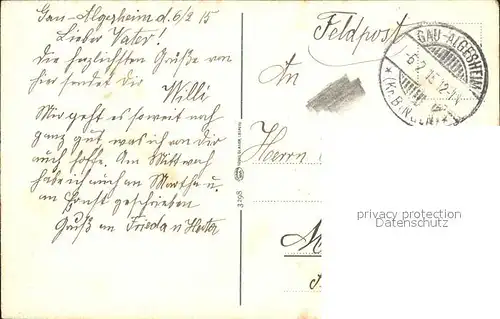 Gau-Algesheim d. 6/2 15
Lieber Vater!
Die herzlichsten Grüße von
hier sendet dir
Willi
Mir geht es soweit noch
ganz gut was ich von dir
auch hoffe. Am Mittwoch
habe ich auch an Martha u.
an Ernst geschrieben
Gruß an Frieda u Herta
3298
Feldpost
An
Herrn
GAU-ALGESHEIM
6.2.15.12-1N
* (Kr. BINGEN) *
privacy protection
Datenschutz